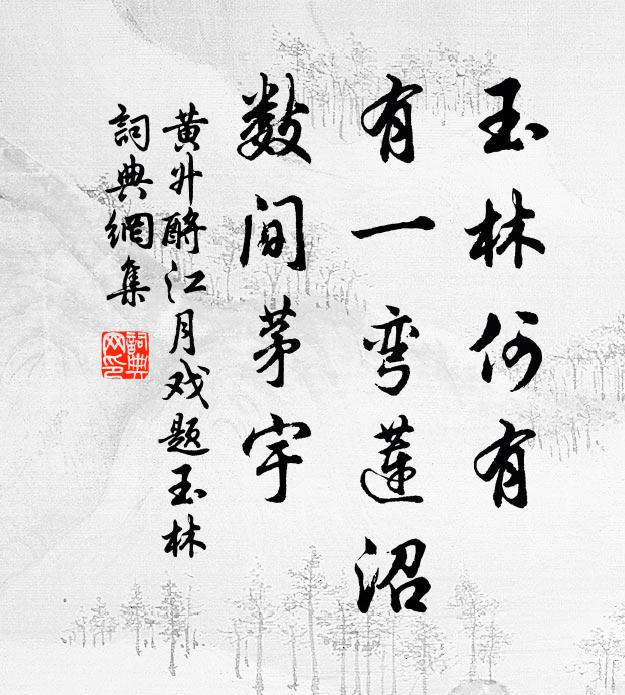 玉林何有
有一弯莲沼
数间茅宇
黄升酹江月戏题玉林
詞典網集
詞典網印